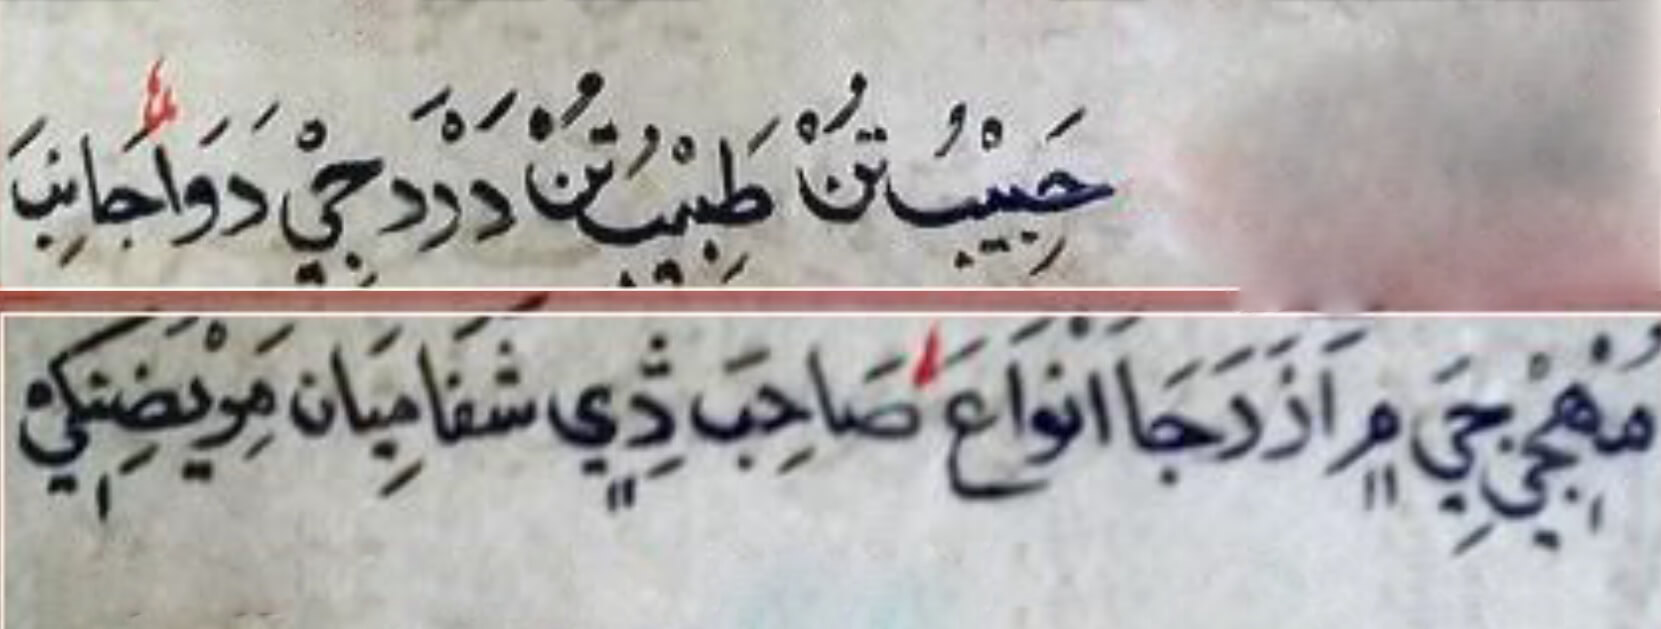 حَبِيْبُ تُنْ طَبِيْبُ تُنْ دَرْدَ جِيْ دَوَا جَانِبَ
مُهْجِيْ جِيَ مٖ اَزَرَ جَا اَنْوَاعَ صَاحِبَ ڎِي شَفَا مِيَان مَرِيْضَنِكٖي